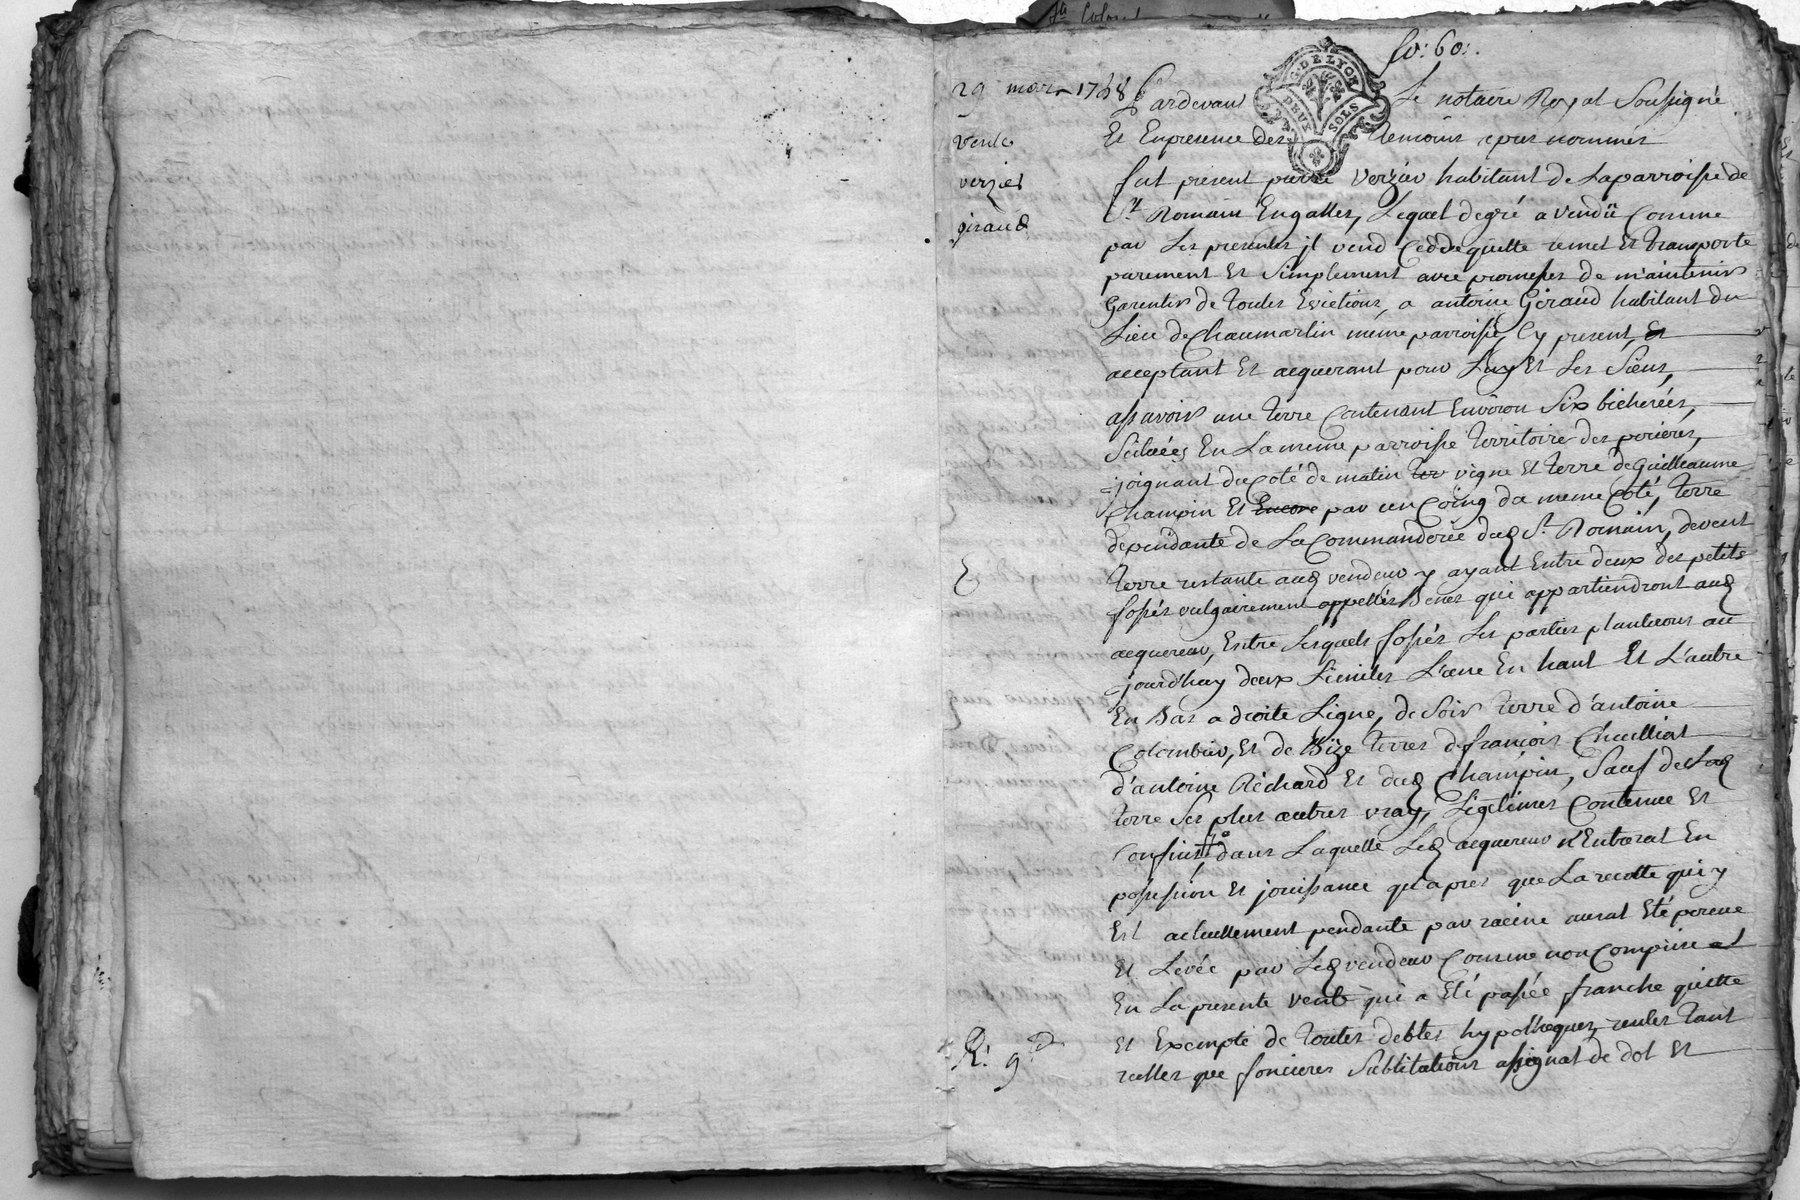 fo: 60:
29 mars 1738
vente
verzier
giraud
G. DE LYON
DEUX SOLS
Pardevant Le notaire Royal Soussigné
Et En presence des temoins apres nommés
fut present pierre Verzier habitant de La parroisse de
St Romain Engallier, Lequel degré a vendü Comme
par Les presentes jl vend Cedde quitte remet Et transporte
purement Et Simplement avec promesses de maintenir
Garentir de toutes Evictions, a antoine Giraud habitant du
Lieu de Chaumartin meme parroisse, Cy present, Et
acceptant Et acquerant pour Luy Et Les Siens,
assavoir une terre Contenant Environ Six bicherées,
Scituées En La meme parroisse territoire des perieres,
joignant du Coté de matin vigne Et terre de Guilleaume
Champin Et Encore par un Coing du meme Coté, terre
dependante de La Commanderie dud St Romain, de vent
terre restante aud vendeur y ayant Entre deux des petits
fossés vulgairement appellés qui appartiendront aud
acquereur, Entre Lesquels fossés Les parties planteront au
jourd'huy deux Limites L'une En haut Et L'autre
En Bas a droite Ligne, de Soir terre d'antoine
Colombier, Et de Bize terres de francois Chuilliat
d'antoine Richard Et dud Champin, Sauf de Lad
terre Ses plus autres vray, Legitimes Contenue Et
Confins, dans Laquelle Led acquereur N'Entrerat En
possession Et jouissance qu'apres que La recolte qui y
Est actuellement pendante par racine aurat Eté percue
Et Levée par Led vendeur Comme non Comprise
En La presente vente qui a Eté passée franche quitte
Et Exempte de toutes debtes hypotheques, rentes tant
reelles que foncieres Subtitutions assignat de dot Et
R: 9d